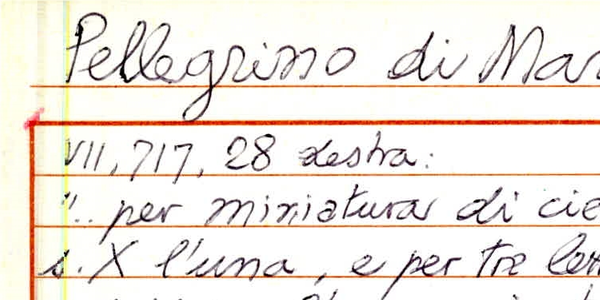 Pellegrino di Mar
VII, 717, 28 destra:
"... per miniatura di cie
s. X l'una, e per tre lett